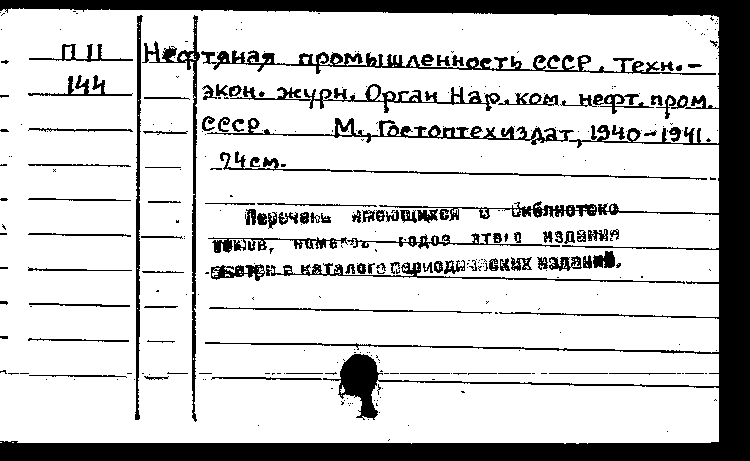 П 11 Нефтяная промышленность СССР. Техн.-
144 экон. журн. Орган Нар. ком. нефт. пром.
СССР. М., Гостоптехиздат, 1940-1941.
24 см.
Перечень имеющихся в библиотеке
томов, номеров, годов этого издания
смотри в каталоге периодических изданий.